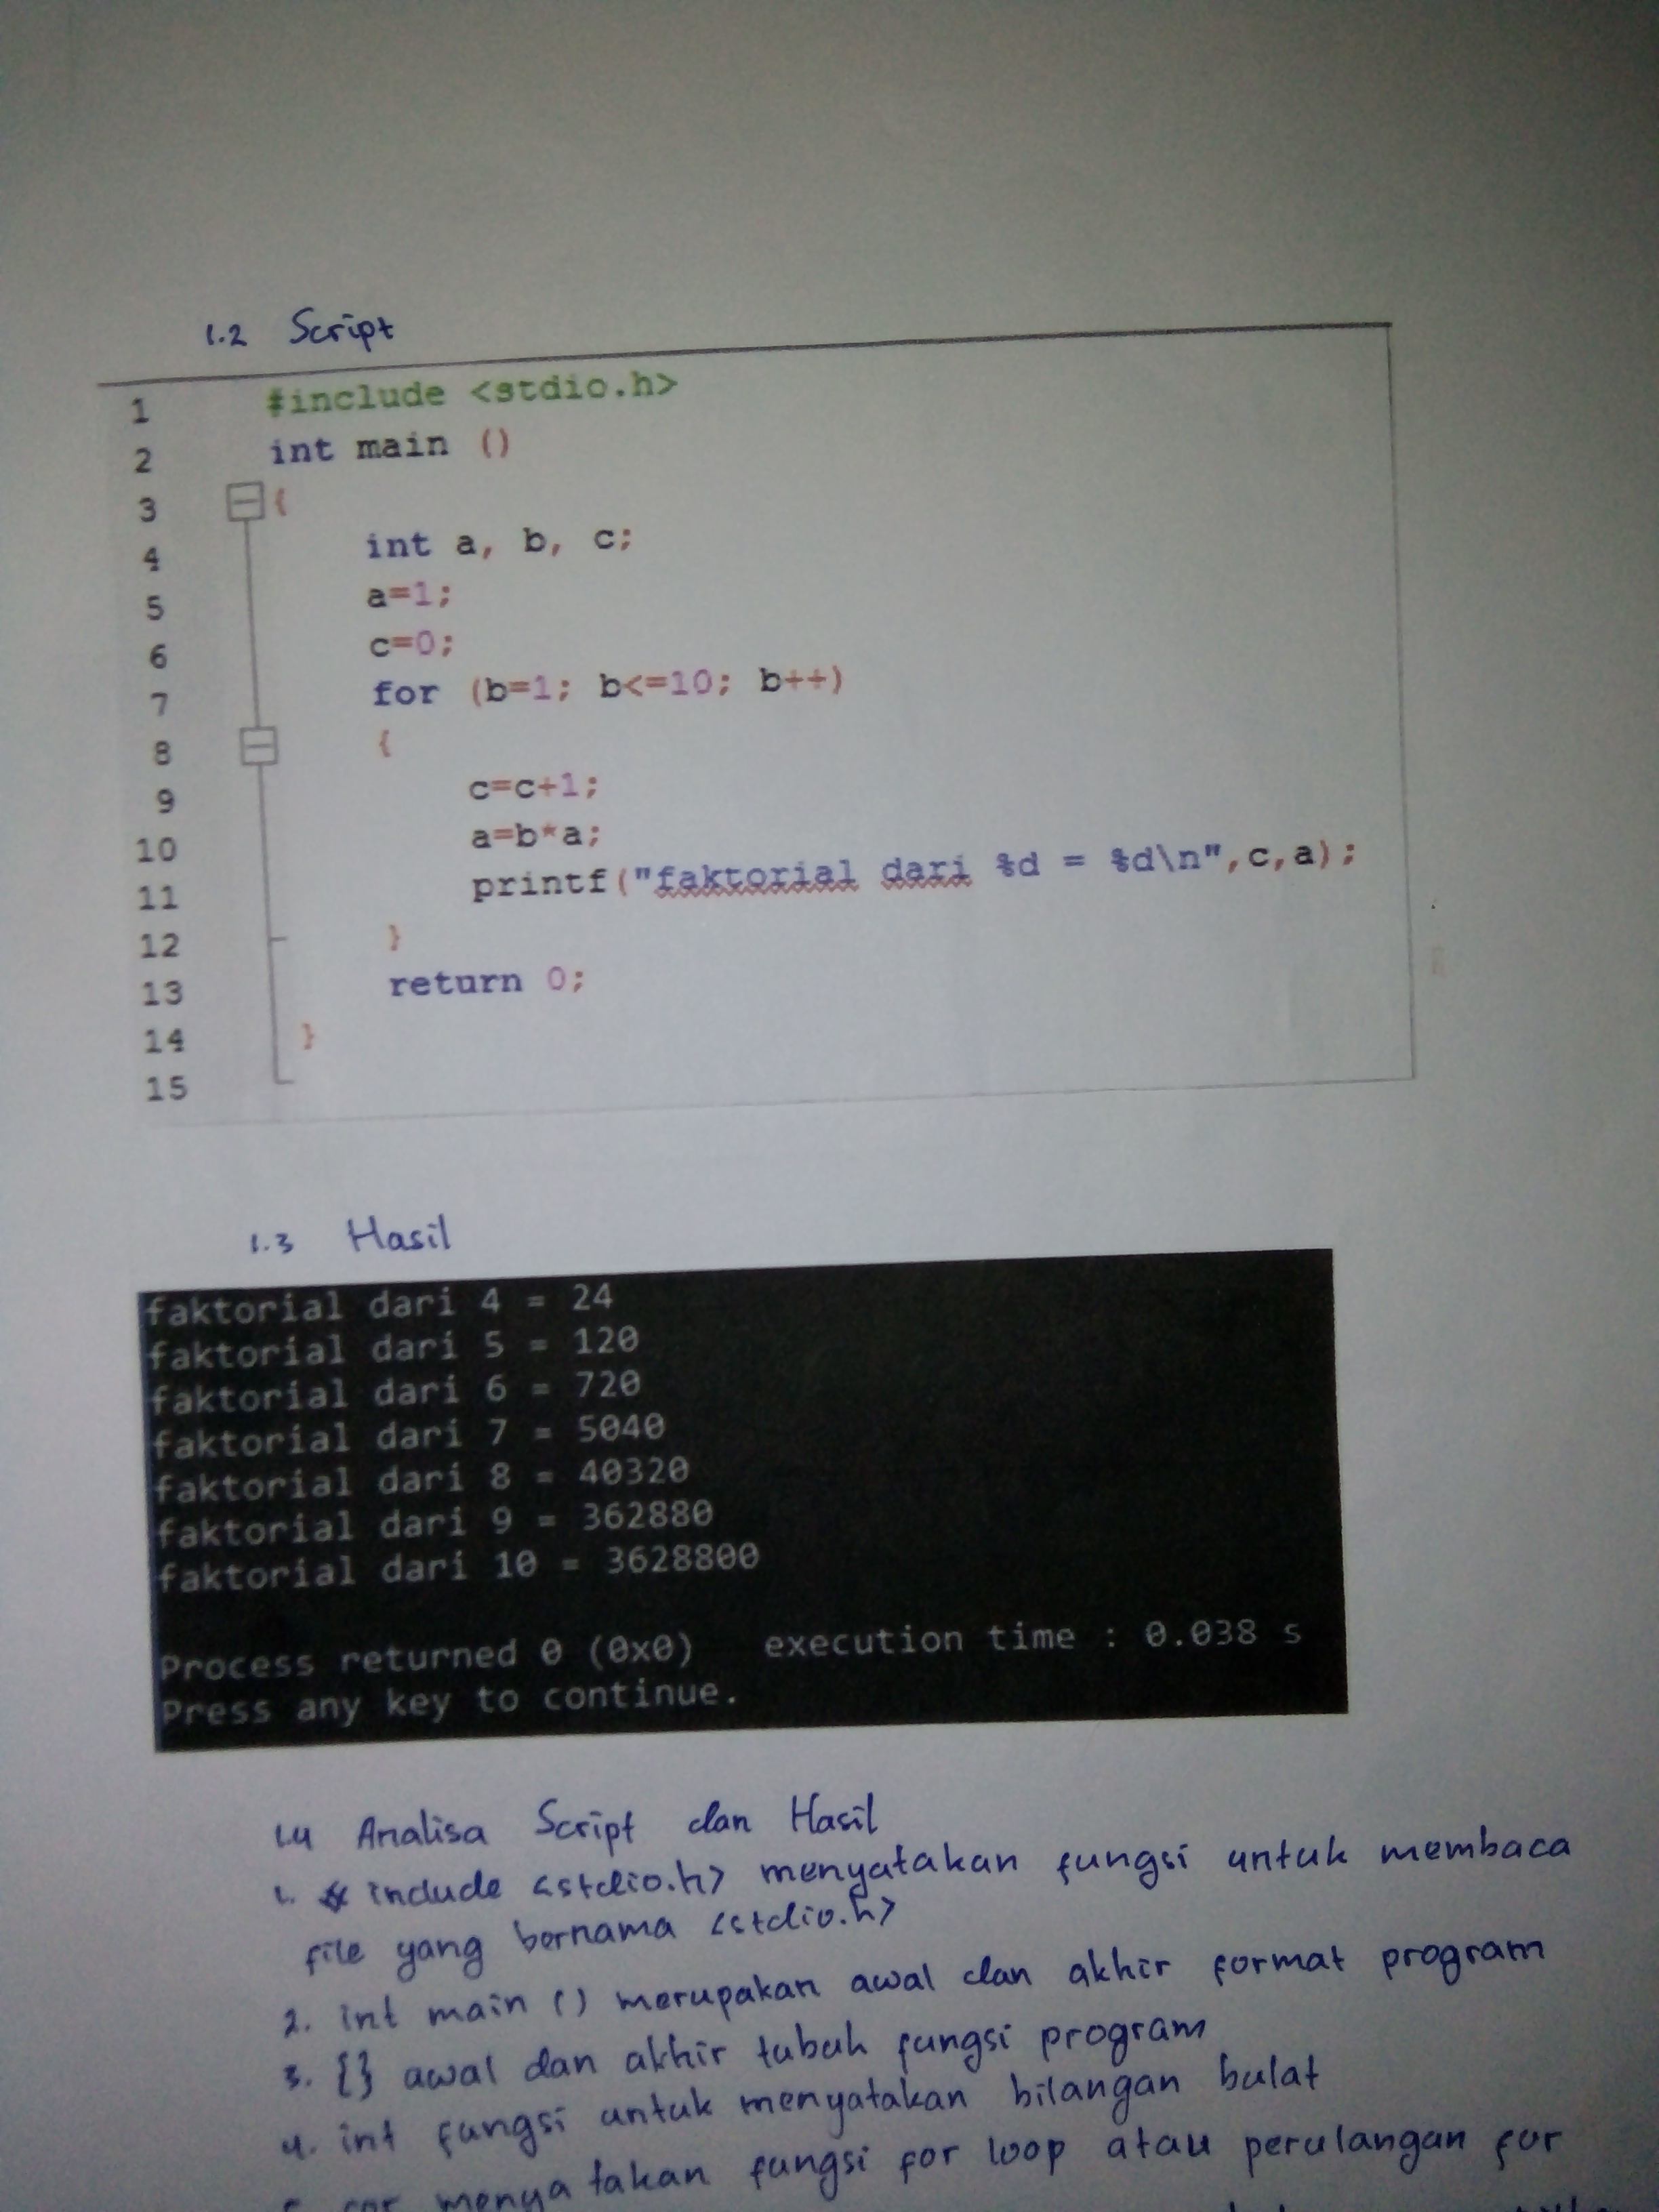 1.2 Script
1 #include <stdio.h>
2 int main ()
3 {
4 int a, b, c;
5 a=1;
6 c=0;
7 for (b=1; b<=10; b++)
8 {
9 c=c+1;
10 a=b*a;
11 printf("faktorial dari %d = %d\n",c,a);
12 }
13 return 0;
14 }
15
1.3 Hasil
faktorial dari 4 = 24
faktorial dari 5 = 120
faktorial dari 6 = 720
faktorial dari 7 = 5040
faktorial dari 8 = 40320
faktorial dari 9 = 362880
faktorial dari 10 = 3628800
Process returned 0 (0x0) execution time : 0.038 s
Press any key to continue.
1.4 Analisa Script dan Hasil
1. # include <stdio.h> menyatakan fungsi untuk membaca
file yang bernama <stdio.h>
2. int main () merupakan awal dan akhir format program
3. {} awal dan akhir tubuh fungsi program
4. int fungsi untuk menyatakan bilangan bulat
5. for menyatakan fungsi for loop atau perulangan for